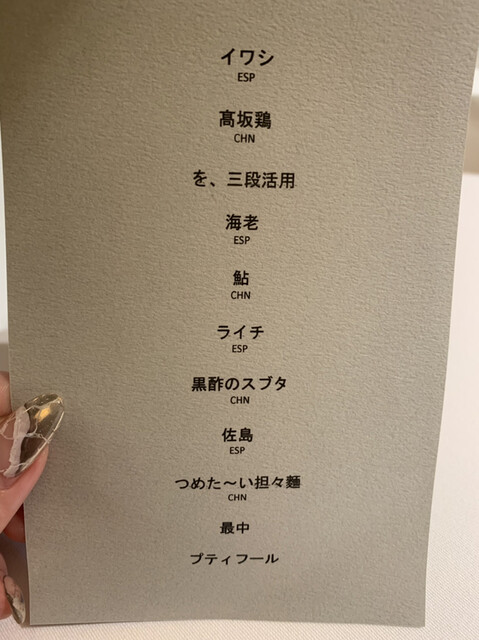 イワシ
ESP
髙坂鶏
CHN
を、三段活用
海老
ESP
鮎
CHN
ライチ
ESP
黒酢のスブタ
CHN
佐島
ESP
つめた〜い担々麺
CHN
最中
プティフール